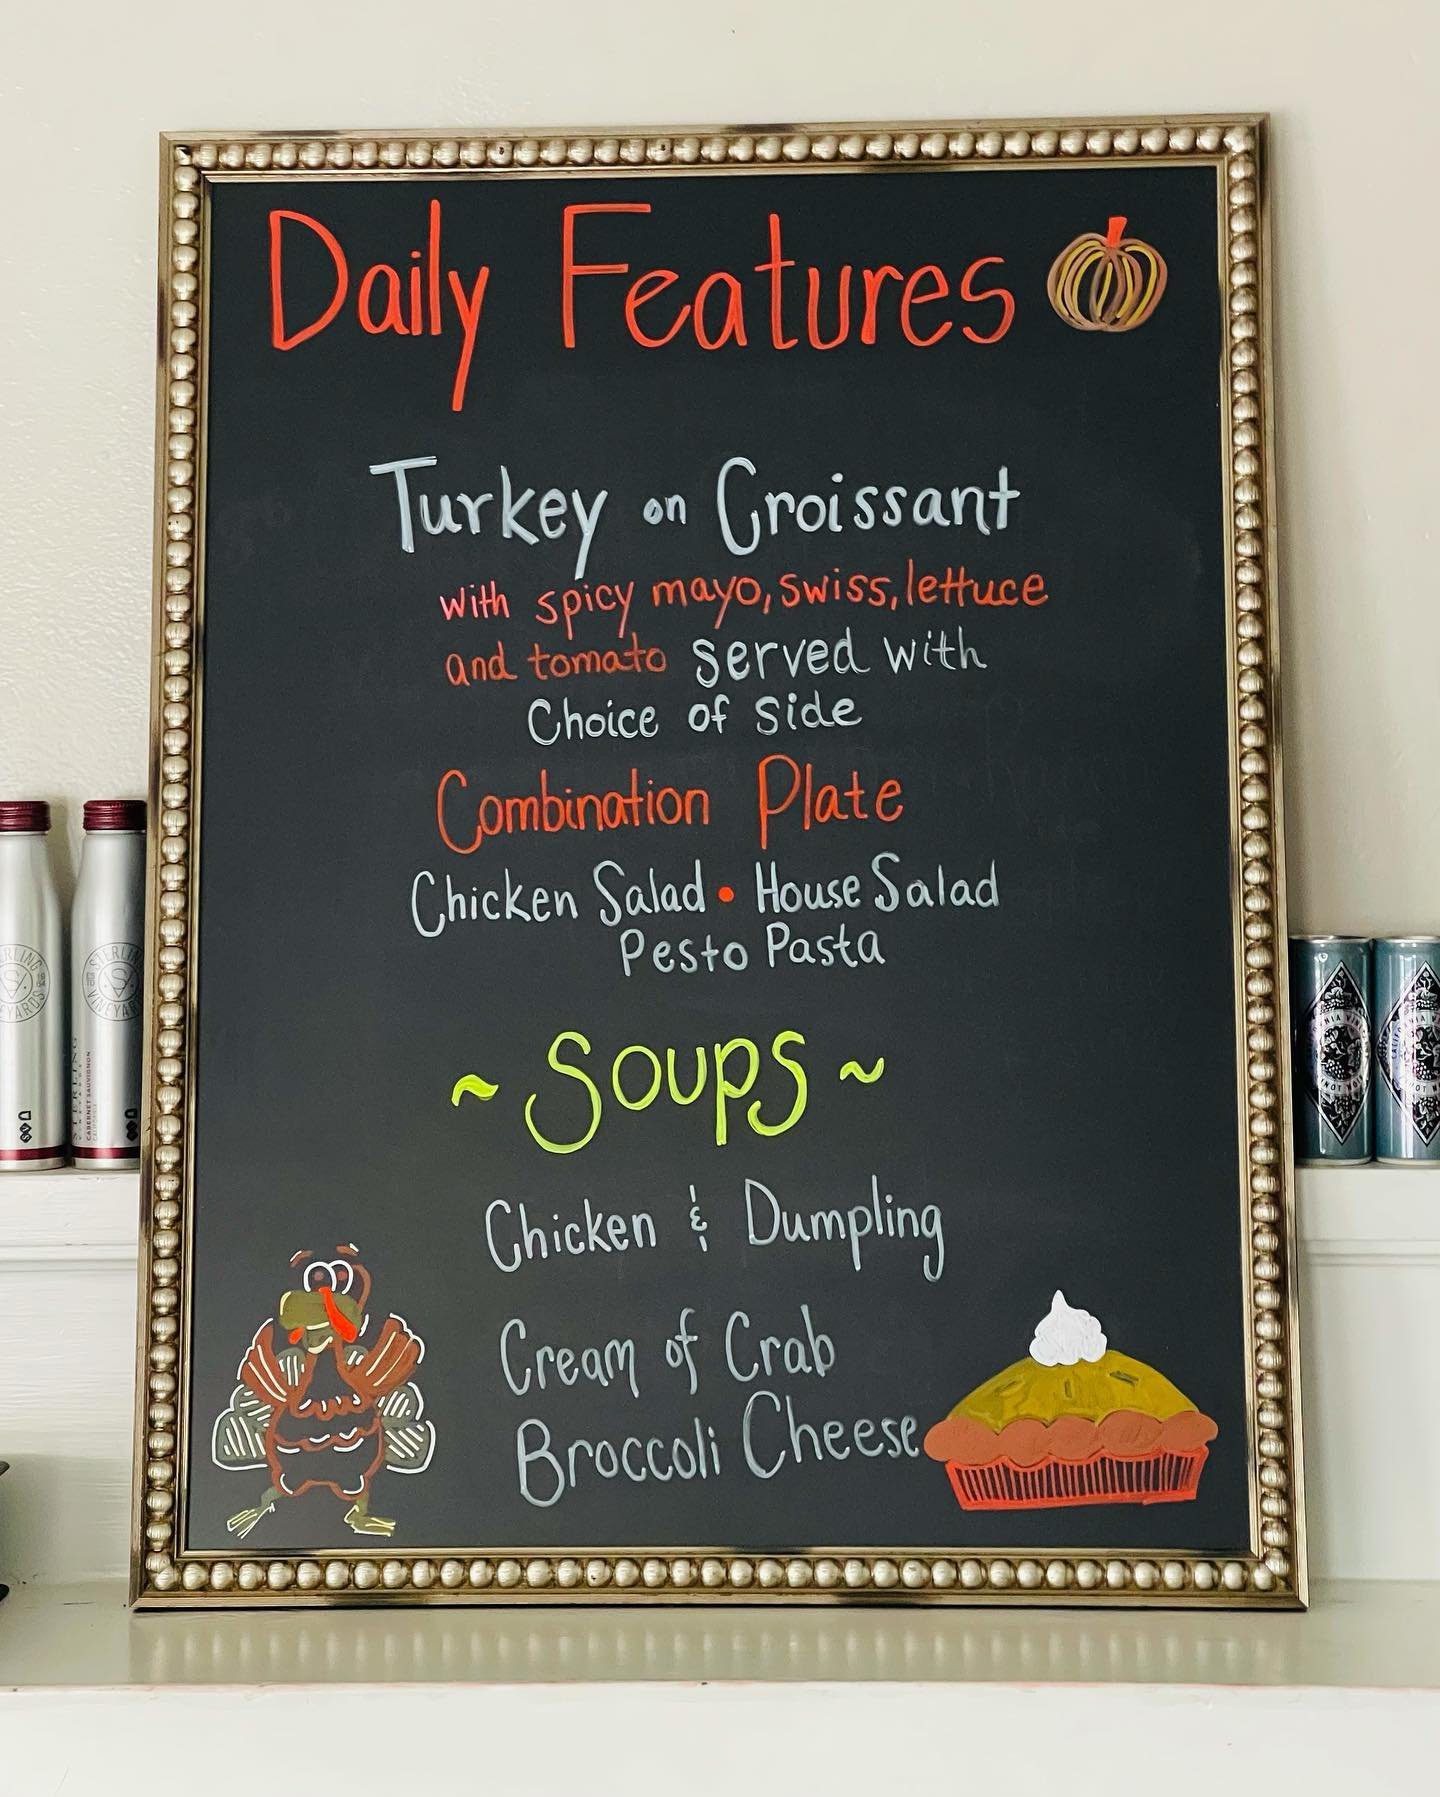 Daily Features
Turkey on Croissant
with spicy mayo, swiss, lettuce
and tomato served with
Choice of side
Combination Plate
Chicken Salad • House Salad
Pesto Pasta
~ Soups ~
Chicken & Dumpling
Cream of Crab
Broccoli Cheese
STERLING
VINEYARDS
STERLING
VINEYARDS
CABERNET SAUVIGNON